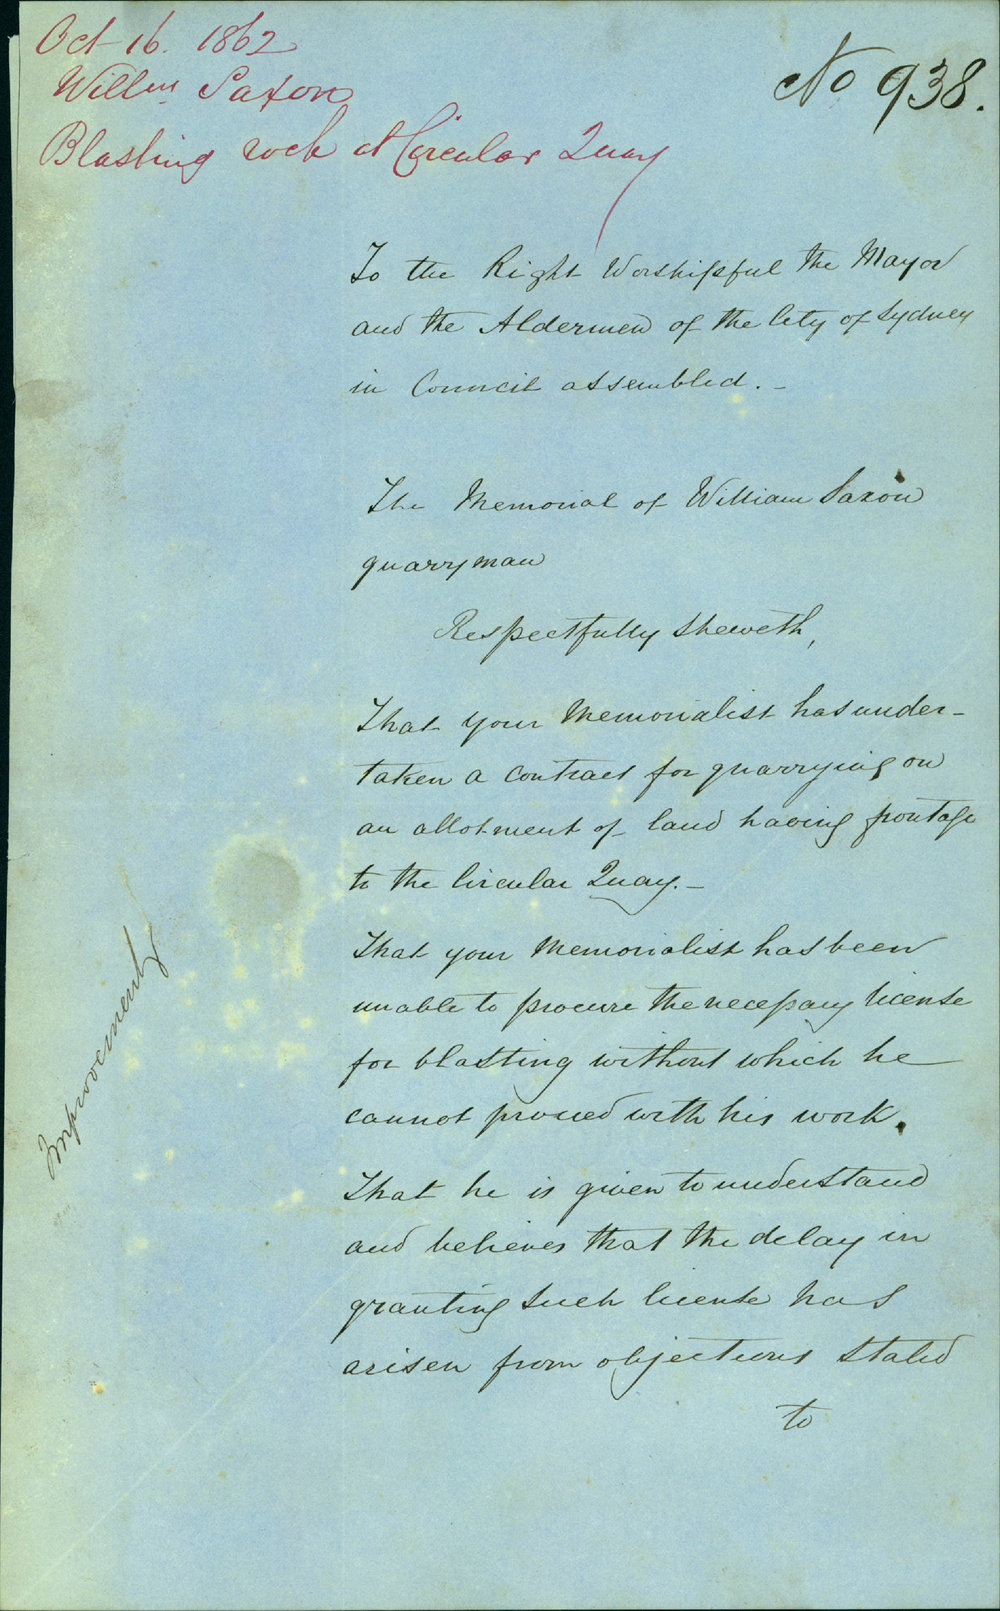 Oct 16. 1862
Willm Saxon
Blasting rock at Circular Quay
No 938.
To the Right Worshipful the Mayor
and the Aldermen of the City of Sydney
in Council assembled. -
The Memorial of William Saxon
quarryman
Respectfully Sheweth,
That your Memorialist has under-
taken a contract for quarrying on
an allotment of land having frontage
to the Circular Quay. -
That your Memorialist has been
unable to procure the necessary license
for blasting without which he
cannot proceed with his work.
That he is given to understand
and believes that the delay in
granting such license has
arisen from objections stated
to
Improvements